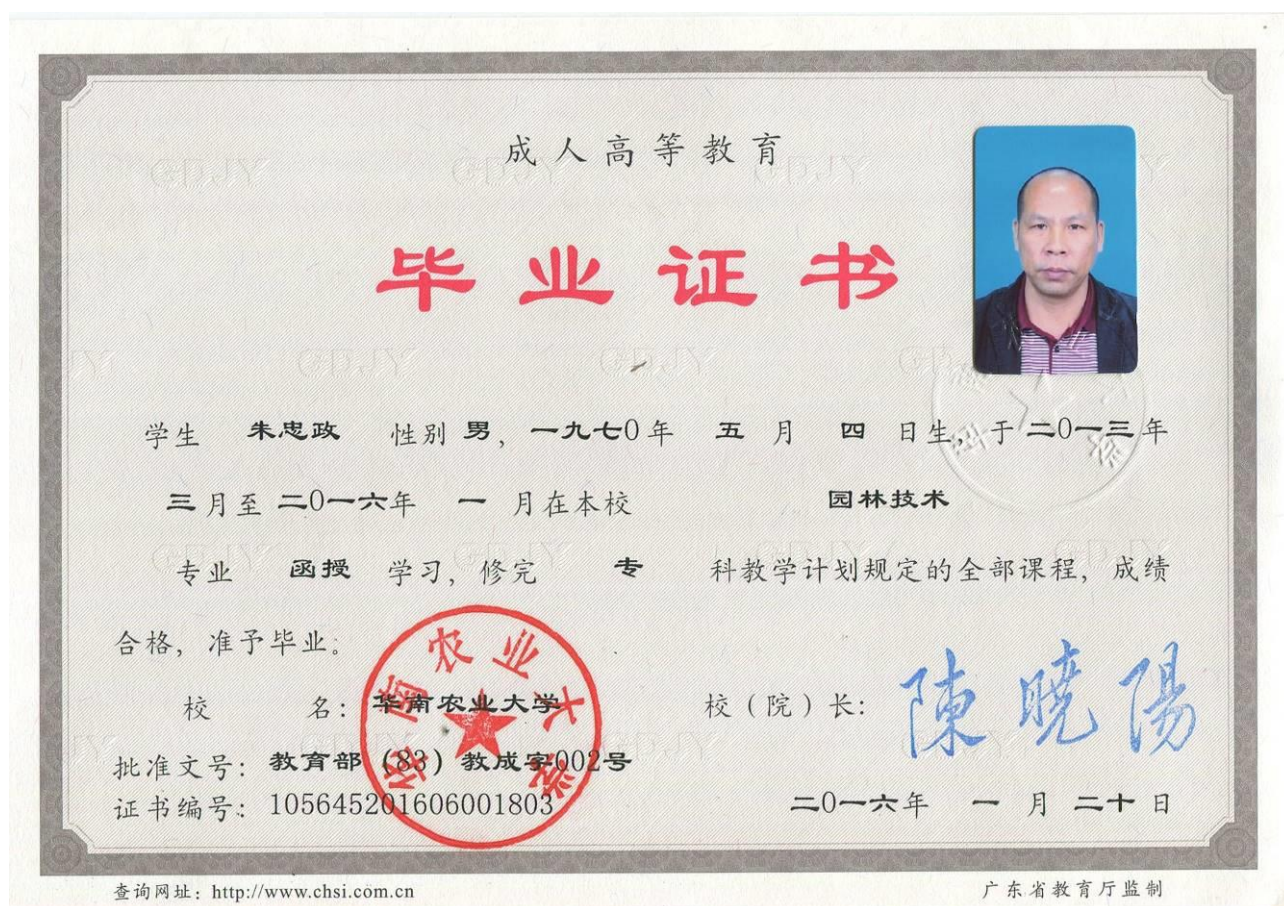 成人高等教育
毕业证书
学生 朱忠政 性别 男，一九七0年 五 月 四 日生，于二0一三年
三月至二0一六年 一 月在本校 园林技术
专业 函授 学习，修完 专 科教学计划规定的全部课程，成绩
合格，准予毕业。
校 名：华南农业大学 校（院）长：陳曉陽
批准文号：教育部（83）教成字002号
证书编号：105645201606001803 二0一六年 一 月 二十 日
华南农业大学
查询网址：http://www.chsi.com.cn 广东省教育厅监制
GDJY